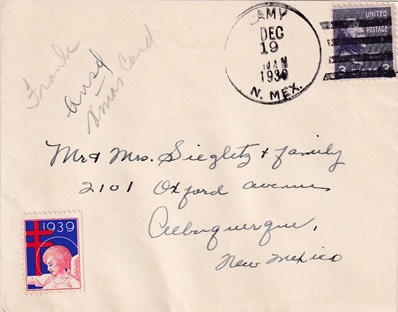 Frank
ansd
Xmas Card
AMY
DEC
19
AM
1939
N. MEX.
UNITED
POSTAGE
3 3
Mr & Mrs. Sieglitz & family
2101 Oxford avenue
Albuquerque,
New Mexico
1939